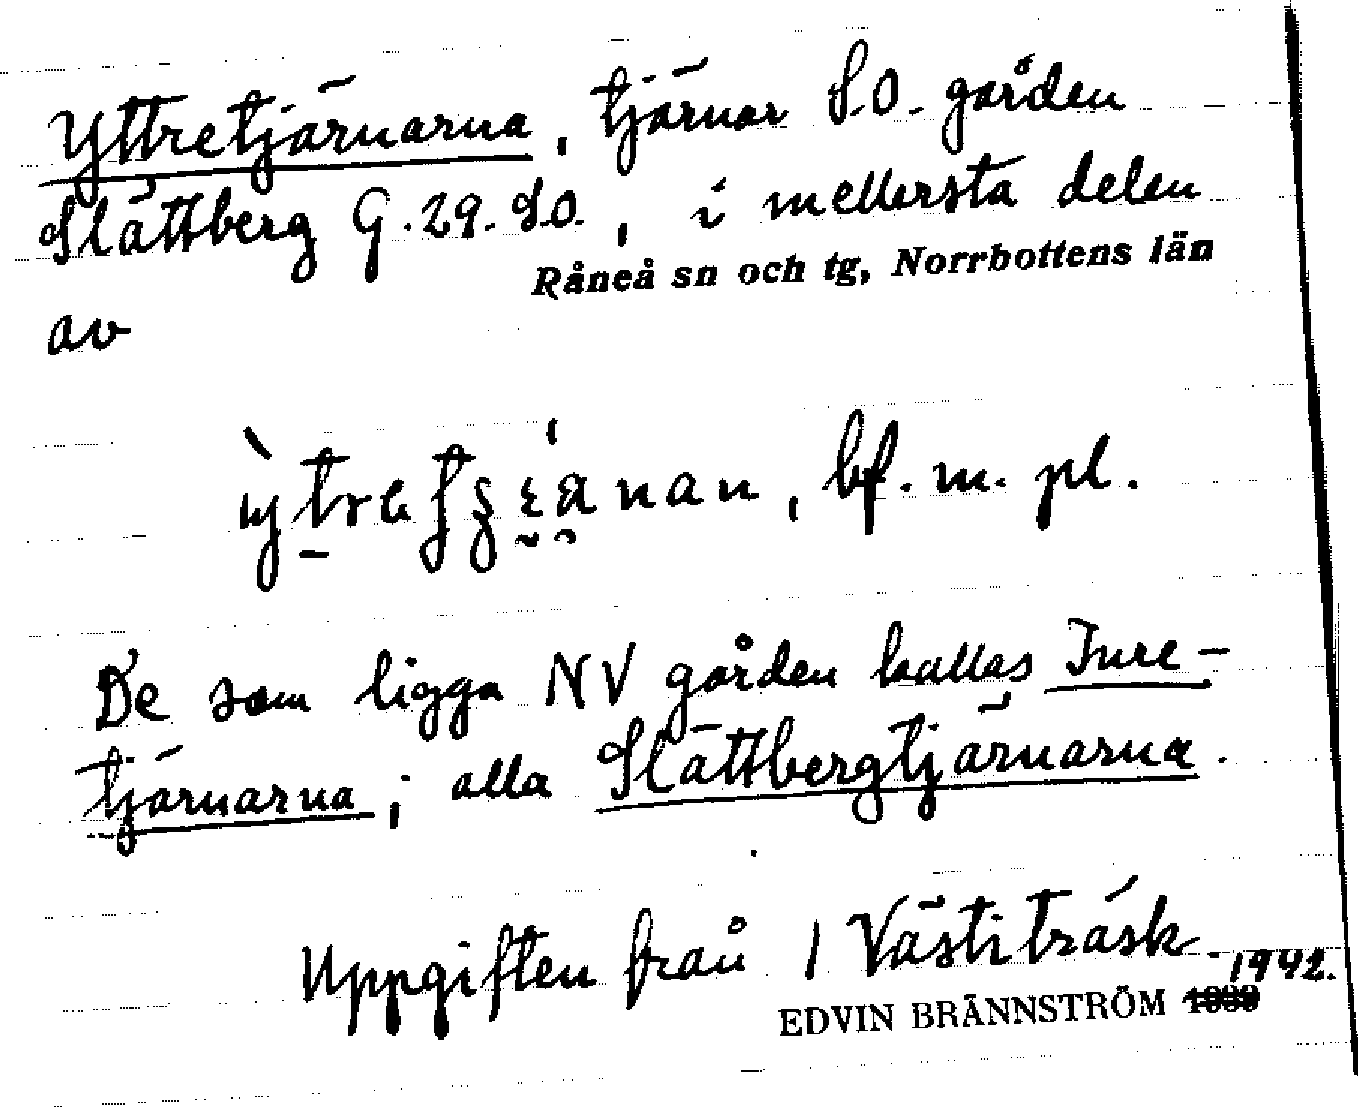 Yttretjärnarna, tjärnar S.O. gården
Slättberg G.29. S.O., i mellersta delen
Råneå sn och tg, Norrbottens län
av
bf. m. pl.
De som ligga NV gården kallas Inre-
tjärnarna; alla Slättbergtjärnarna.
Uppgiften från 1 Västiträsk
1942.
EDVIN BRÄNNSTRÖM 1939